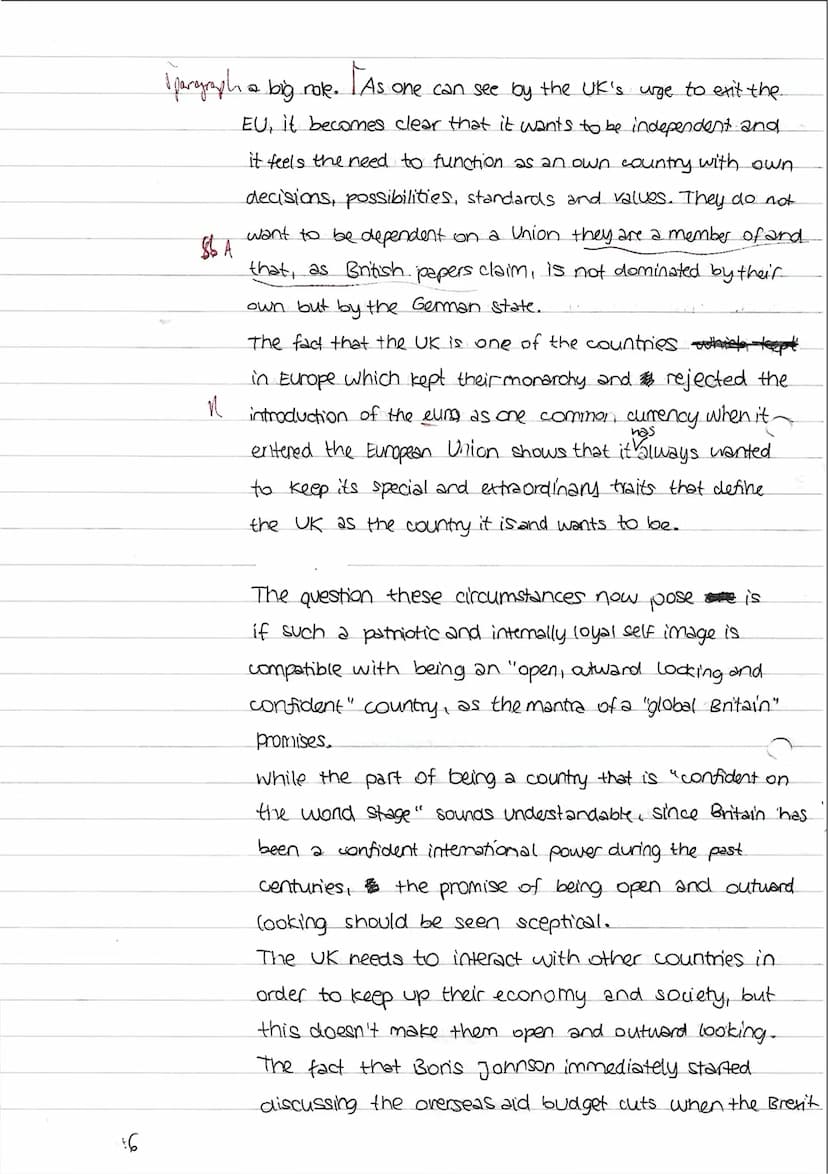 paragraph a big role. As one can see by the UK's urge to exit the
EU, it becomes clear that it wants to be independent and
it feels the need to function as an own country with own
decisions, possibilities, standards and values. They do not
want to be dependent on a Union they are a member of and
Sb A
that, as British papers claim, is not dominated by their
own but by the German state.
The fact that the UK is one of the countries which kept
in Europe which kept their monarchy and rejected the
introduction of the euro as one common currency when it
has
entered the European Union shows that it always wanted
to keep its special and extraordinary traits that define
the UK as the country it is and wants to be.
The question these circumstances now pose is
if such a patriotic and internally loyal self image is
compatible with being an "open, outward looking and
confident" country, as the mantra of a "global Britain"
promises.
While the part of being a country that is "confident on
the world stage" sounds understandable, since Britain has
been a confident international power during the past
centuries, the promise of being open and outward
looking should be seen sceptical.
The UK needs to interact with other countries in
order to keep up their economy and society, but
this doesn't make them open and outward looking.
The fact that Boris Johnson immediately started
discussing the overseas aid budget cuts when the Brexit